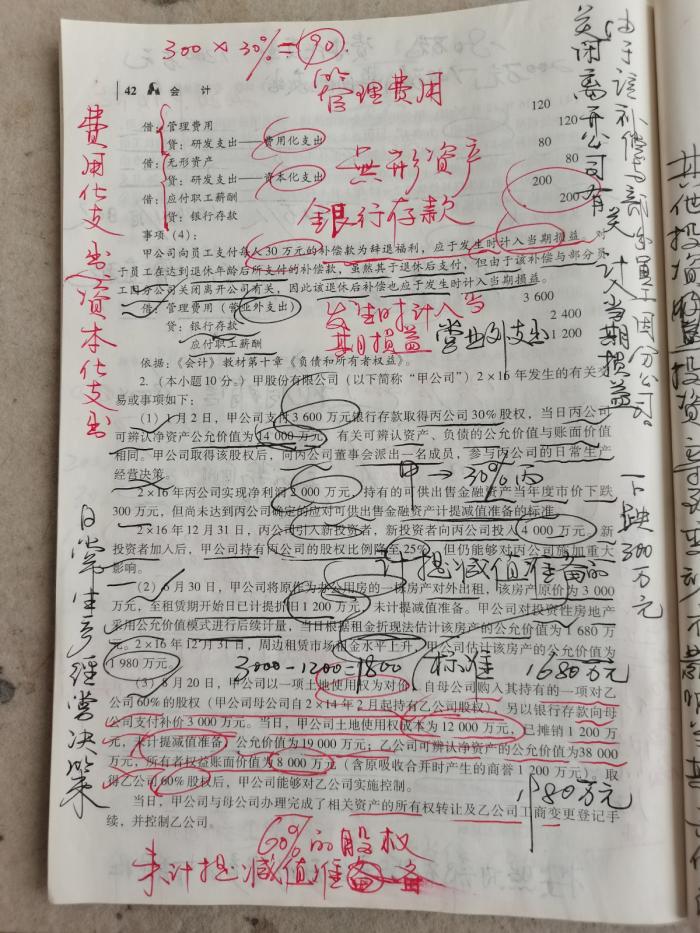 300×30%=90.
42 会 计
管理费用
借：管理费用 120
贷：研发支出——费用化支出 120
借：无形资产 80
贷：研发支出——资本化支出 80
借：应付职工薪酬 200
贷：银行存款 200
無形资产
银行存款
事项（4）：
甲公司向员工支付每人 30 万元的补偿款为辞退福利，应于发生时计入当期损益。对
于员工在达到退休年龄后所支付的补偿款，虽然其于退休后支付，但由于该补偿与部分员
工因分公司关闭离开公司有关，因此该退休后补偿也应于发生时计入当期损益。
借：管理费用（营业外支出） 3 600
贷：银行存款 2 400
应付职工薪酬 1 200
发生时计入当
期损益
营业外支出
依据：《会计》教材第十章《负债和所有者权益》。
2.（本小题 10 分。）甲股份有限公司（以下简称“甲公司”）2×16 年发生的有关交
易或事项如下：
（1）1 月 2 日，甲公司支付 3 600 万元银行存款取得丙公司 30%股权，当日丙公司
可辨认净资产公允价值为 14 000 万元，有关可辨认资产、负债的公允价值与账面价值
相同。甲公司取得该股权后，向丙公司董事会派出一名成员，参与丙公司的日常生产
经营决策。
甲→30%丙
2×16 年丙公司实现净利润 2 000 万元，持有的可供出售金融资产当年度市价下跌
300 万元，但尚未达到丙公司确定的应对可供出售金融资产计提减值准备的标准。
2×16 年 12 月 31 日，丙公司引入新投资者，新投资者向丙公司投入 4 000 万元，新
投资者加入后，甲公司持有丙公司的股权比例降至 25%，但仍能够对丙公司施加重大
影响。
计提减值准备的
（2）6 月 30 日，甲公司将原作为办公用房的一栋房产对外出租，该房产原价为 3 000
万元，至租赁期开始日已计提折旧 1 200 万元，未计提减值准备。甲公司对投资性房地产
采用公允价值模式进行后续计量，当日根据租金折现法估计该房产的公允价值为 1 680 万
元。2×16 年 12 月 31 日，周边租赁市场租金水平上升，甲公司估计该房产的公允价值为
1 980 万元。
3000-1200=1800 标准 1680万元
（3）8 月 20 日，甲公司以一项土地使用权为对价，自母公司购入其持有的一项对乙
公司 60%的股权（甲公司母公司自 2×14 年 2 月起持有乙公司股权），另以银行存款向母
公司支付补价 3 000 万元。当日，甲公司土地使用权成本为 12 000 万元，已摊销 1 200 万
元，未计提减值准备，公允价值为 19 000 万元；乙公司可辨认净资产的公允价值为 38 000
万元，所有者权益账面价值为 8 000 万元（含原吸收合并时产生的商誉 1 200 万元）。取
得乙公司 60%股权后，甲公司能够对乙公司实施控制。
1980万元
当日，甲公司与母公司办理完成了相关资产的所有权转让及乙公司工商变更登记手
续，并控制乙公司。
60%的股权
未计提减值准备
费用化支出资本化支出
日常生产经营决策
由于该补偿与部分员工因分公司。
关闭离开公司有关
计入当期损益
下跌300万元